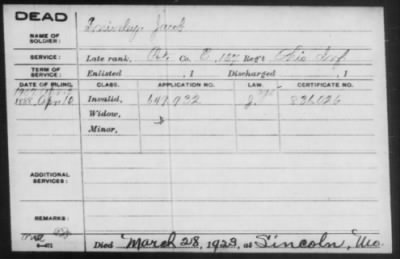 DEAD
NAME OF SOLDIER: Jacob
SERVICE: Late rank, Co. Reg't Ohio Inf
TERM OF SERVICE: Enlisted , 1 Discharged , 1
DATE OF FILING. CLASS. APPLICATION NO. LAW. CERTIFICATE NO.
1888 Apr. 10 Invalid, 649,932 836,026
Widow,
Minor,
ADDITIONAL SERVICES:
REMARKS:
Died March 28, 1923, at Lincoln, Mo.